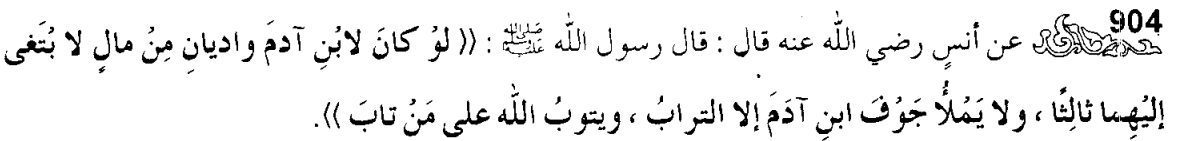 904 عن أنسٍ رضي الله عنه قال : قال رسول الله ﷺ : (( لوْ كانَ لابْنِ آدمَ واديانِ مِنْ مالٍ لا بْتَغى
إليْهِما ثالِثًا ، ولا يَمْلأُ جَوْفَ ابنِ آدَمَ إلا الترابُ ، ويتوبُ الله على مَنْ تابَ )).